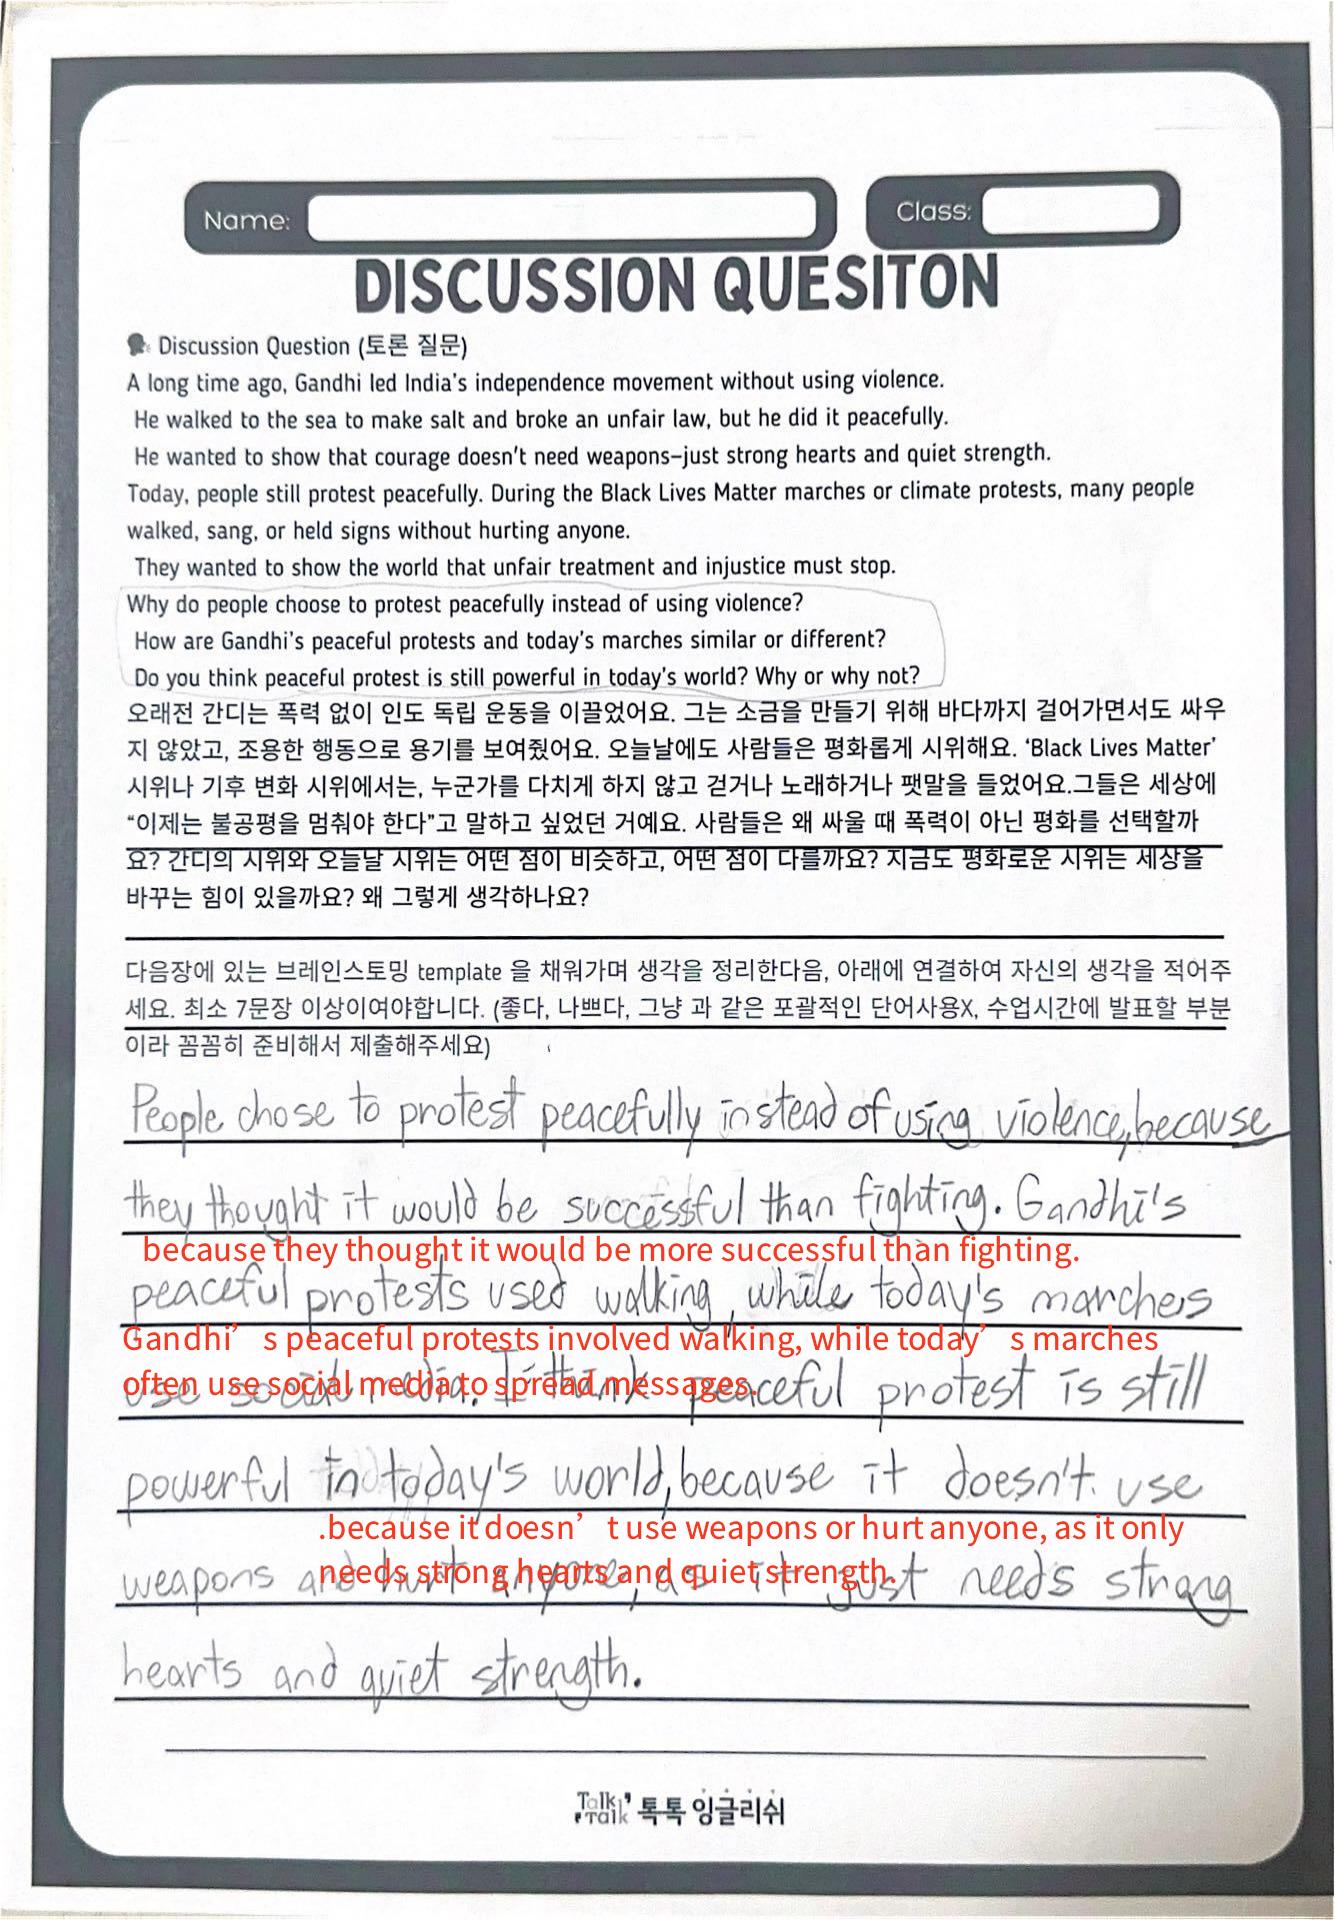 Name:
Class:
DISCUSSION QUESITON
Discussion Question (토론 질문)
A long time ago, Gandhi led India's independence movement without using violence.
He walked to the sea to make salt and broke an unfair law, but he did it peacefully.
He wanted to show that courage doesn't need weapons—just strong hearts and quiet strength.
Today, people still protest peacefully. During the Black Lives Matter marches or climate protests, many people
walked, sang, or held signs without hurting anyone.
They wanted to show the world that unfair treatment and injustice must stop.
Why do people choose to protest peacefully instead of using violence?
How are Gandhi's peaceful protests and today's marches similar or different?
Do you think peaceful protest is still powerful in today's world? Why or why not?
오래전 간디는 폭력 없이 인도 독립 운동을 이끌었어요. 그는 소금을 만들기 위해 바다까지 걸어가면서도 싸우
지 않았고, 조용한 행동으로 용기를 보여줬어요. 오늘날에도 사람들은 평화롭게 시위해요. ‘Black Lives Matter’
시위나 기후 변화 시위에서는, 누군가를 다치게 하지 않고 걷거나 노래하거나 팻말을 들었어요.그들은 세상에
“이제는 불공평을 멈춰야 한다”고 말하고 싶었던 거예요. 사람들은 왜 싸울 때 폭력이 아닌 평화를 선택할까
요? 간디의 시위와 오늘날 시위는 어떤 점이 비슷하고, 어떤 점이 다를까요? 지금도 평화로운 시위는 세상을
바꾸는 힘이 있을까요? 왜 그렇게 생각하나요?
다음장에 있는 브레인스토밍 template 을 채워가며 생각을 정리한다음, 아래에 연결하여 자신의 생각을 적어주
세요. 최소 7문장 이상이여야합니다. (좋다, 나쁘다, 그냥 과 같은 포괄적인 단어사용X, 수업시간에 발표할 부분
이라 꼼꼼히 준비해서 제출해주세요)
People chose to protest peacefully instead of using violence, because
they thought it would be successful than fighting. Gandhi's
because they thought it would be more successful than fighting.
peaceful protests used walking, while today's marches
Gandhi’s peaceful protests involved walking, while today’s marches
often use social media to spread messages.
use social media. I think peaceful protest is still
powerful in today's world, because it doesn't use
.because it doesn’t use weapons or hurt anyone, as it only
needs strong hearts and quiet strength.
weapons and hurt anyone, as it just needs strong
hearts and quiet strength.
Talk Talk 톡톡 잉글리쉬